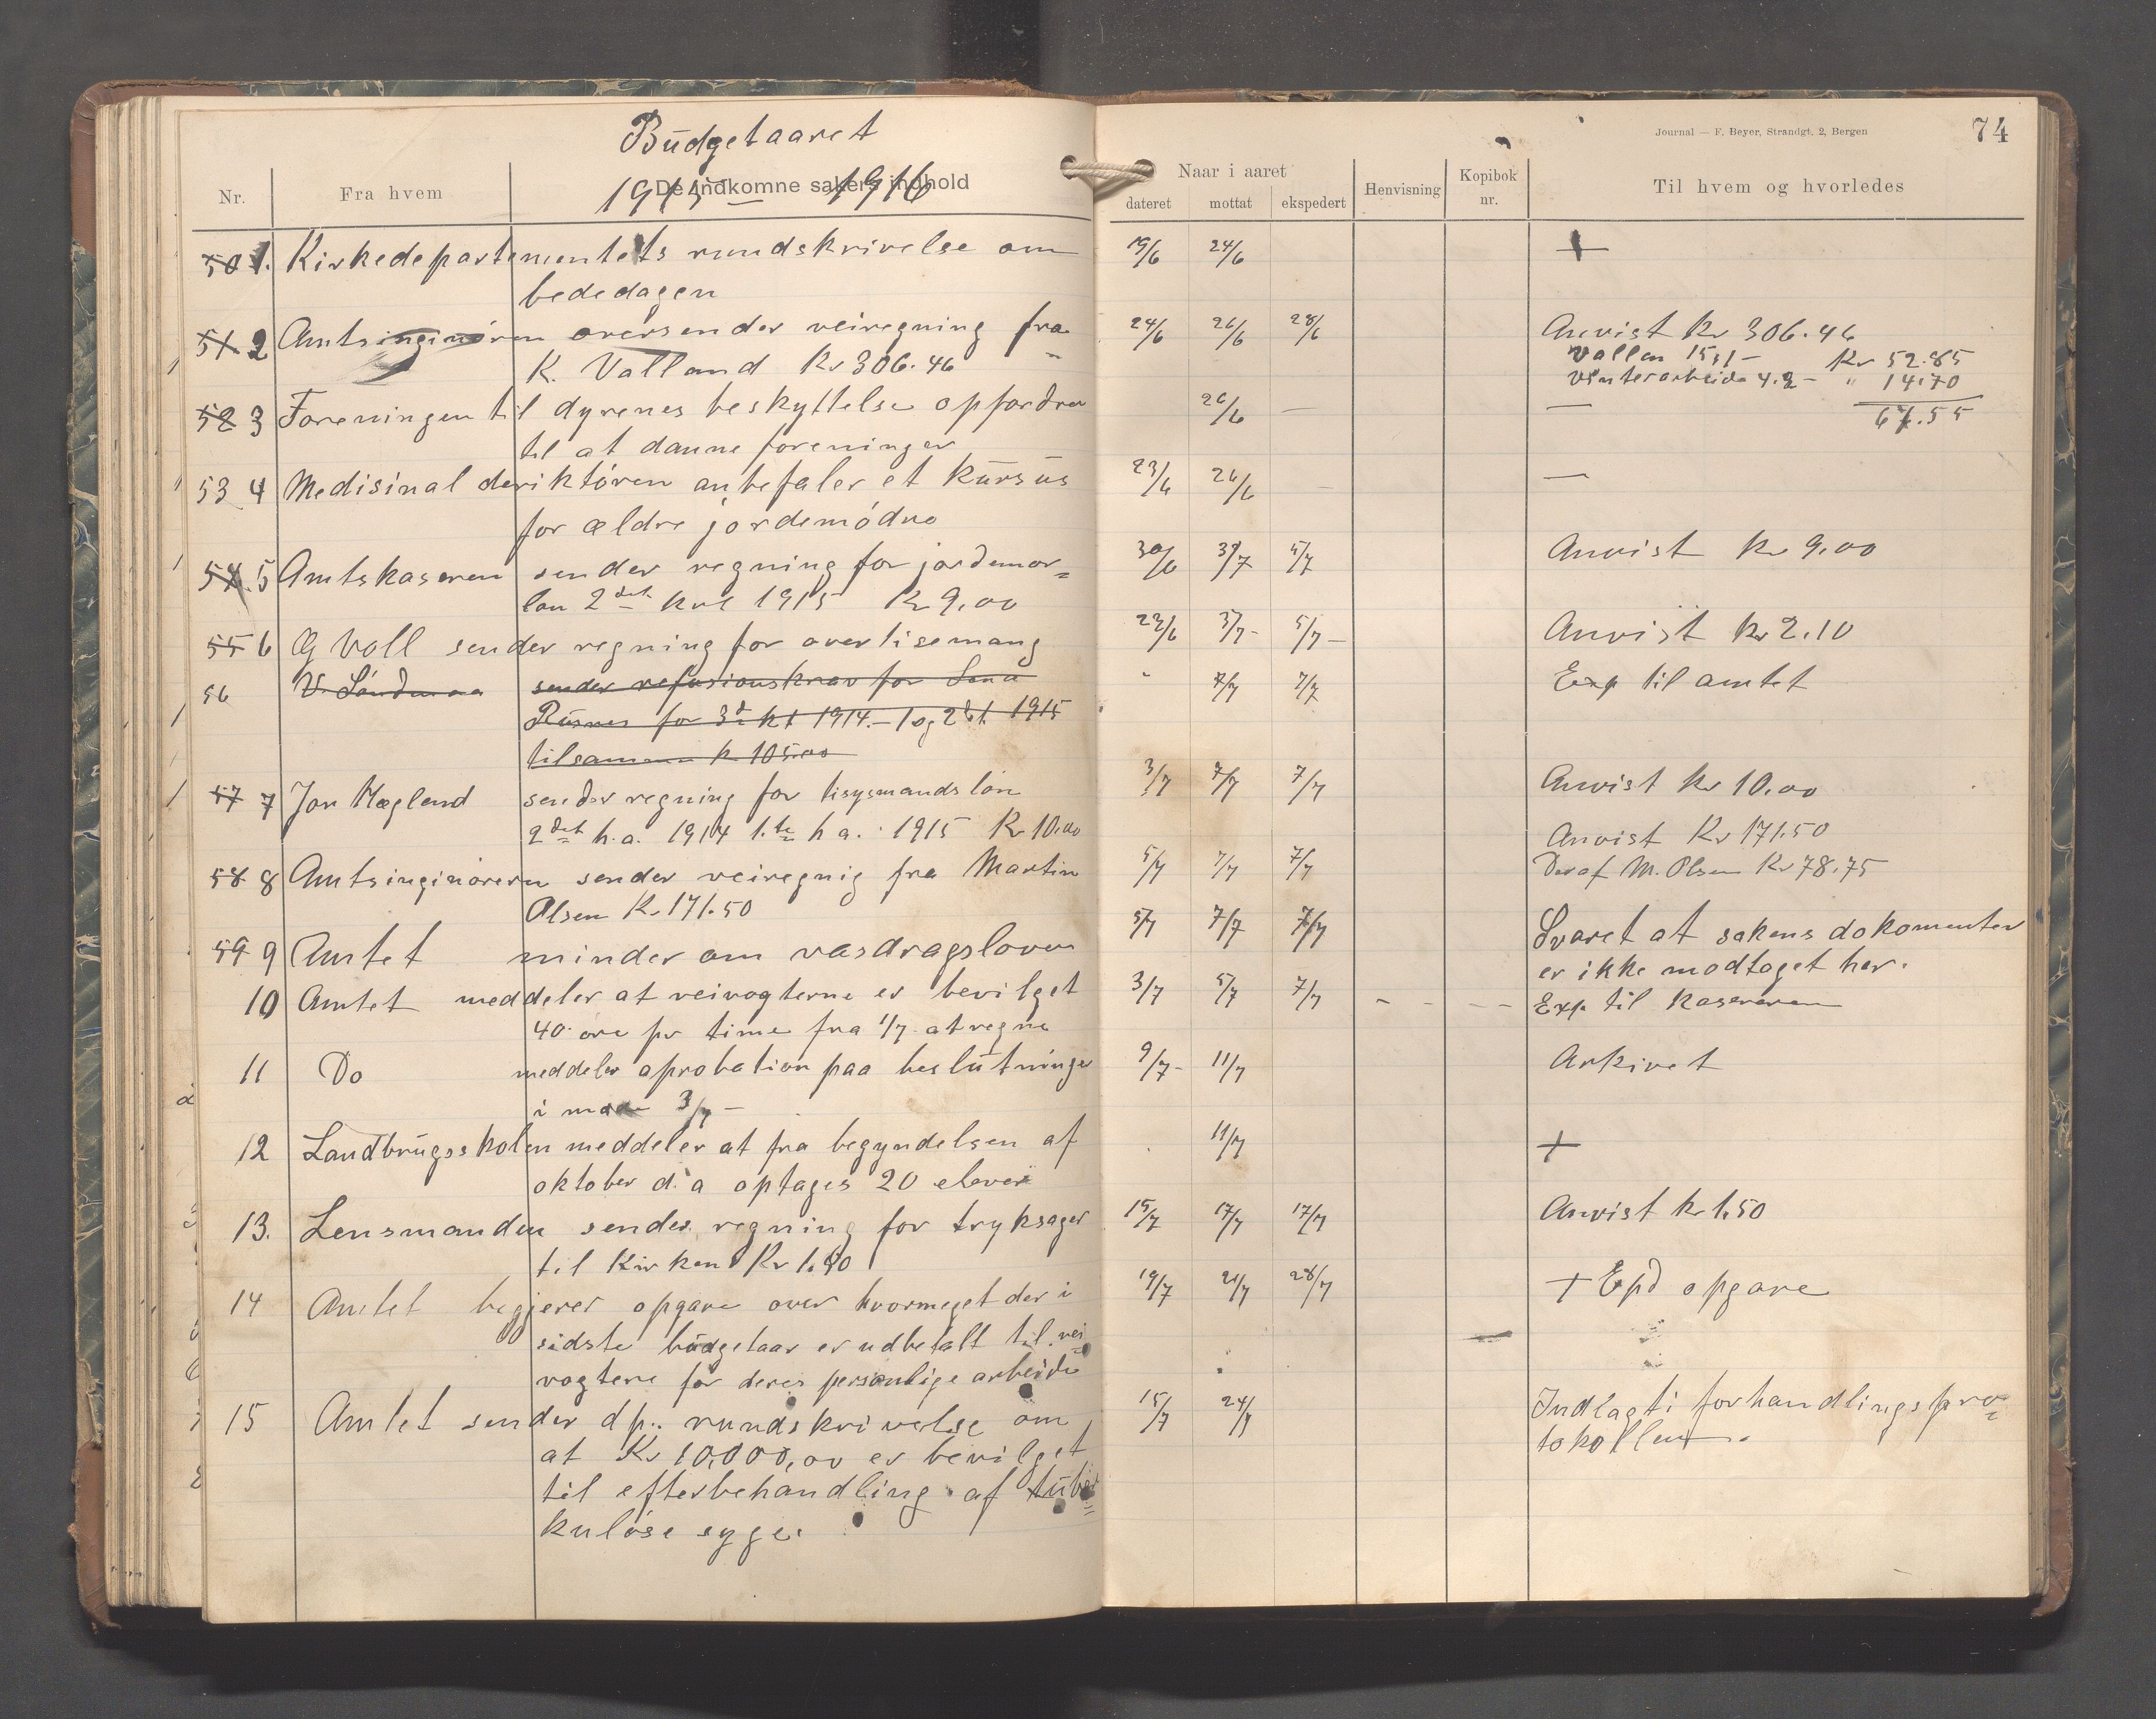 Budgetaaret
1915 — 1916
Journal — F. Beyer, Strandgt. 2, Bergen
74
Nr. Fra hvem De indkomne sakers indhold Naar i aaret Henvisning Kopibok nr. Til hvem og hvorledes
dateret mottat ekspedert
50 1. Kirkedepartementets rundskrivelse om 19/6 24/6 +
bededagen
51. 2 Amtsinginören oversender veiregning fra 24/6 26/6 28/6 Anvist Kr 306.46
K. Valland Kr 306.46
Kr 52.85
Vinterarbeide 4.2 — " 14.70
67.55
52 3 Foreningen til dyrenes beskyttelse opfordrer 26/6 — —
til at danne foreninger
53 4 Medisinal deriktören anbefaler et kursus 23/6 26/6 — —
for ældre jordemödre
54. 5 Amtskaseren sender regning for jordemor= 30/6 3/7 5/7 Anvist Kr 9,00
lön 2det kvt 1915 Kr 9,00
55 6 Voll sender regning for avertisemang 22/6 3/7 - 5/7 — Anvist Kr 2.10
56 V. Sandmaa sender refusionskrav for Lena " 7/7 7/7 Exp til amtet
Rusnes for 3d kt 1914. — 1 og 2 kt. 1915
tilsammen kr 105.00
57 7 Jon Mæglend sender regning for tisysmandslön 3/7 7/7 7/7 Anvist Kr 10.00
2det h.a. 1914 1.te h a. 1915 Kr 10.00
Anvist Kr 171.50
58 8 Amtsinginöreren sender veiregnig fra Martin 5/7 7/7 7/7 Deraf M. Olsen Kr 78.75
Olsen Kr. 171.50
59 9 Amtet minder om vasdragsloven 5/7 7/7 7/7 Svaret at sakens dokomenter
er ikke modtaget her.
10 Amtet meddeler at veivogterne er bevilget 3/7 5/7 7/7 - - - - Exp. til Kasereren
40 öre pr time fra 1/7 at regne
11 Do meddeler aprobation paa beslutninger 9/7 - 11/7 Arkivet
i møde 3/7 —
12 Landbrugsskolen meddeler at fra begyndelsen af 11/7 +
oktober d. a optages 20 elever
13. Lensmanden sender regning for tryksager 15/7 17/7 17/7 Anvist kr 1.50
til Kirken Kr 1.50
14 Amtet begjerer opgave over hvormeget der i 19/7 21/7 28/7 + Epd opgave
sidste budgetaar er udbetalt til vei=
vogtere for deres personlige arbeide
15 Amtet sender dp.: rundskrivelse om 15/7 24/7 Indlagt i forhandlingspro=
at Kr 10,000,00 er bevilget tokollen.
til efterbehandling af tuber=
kulöse syge.